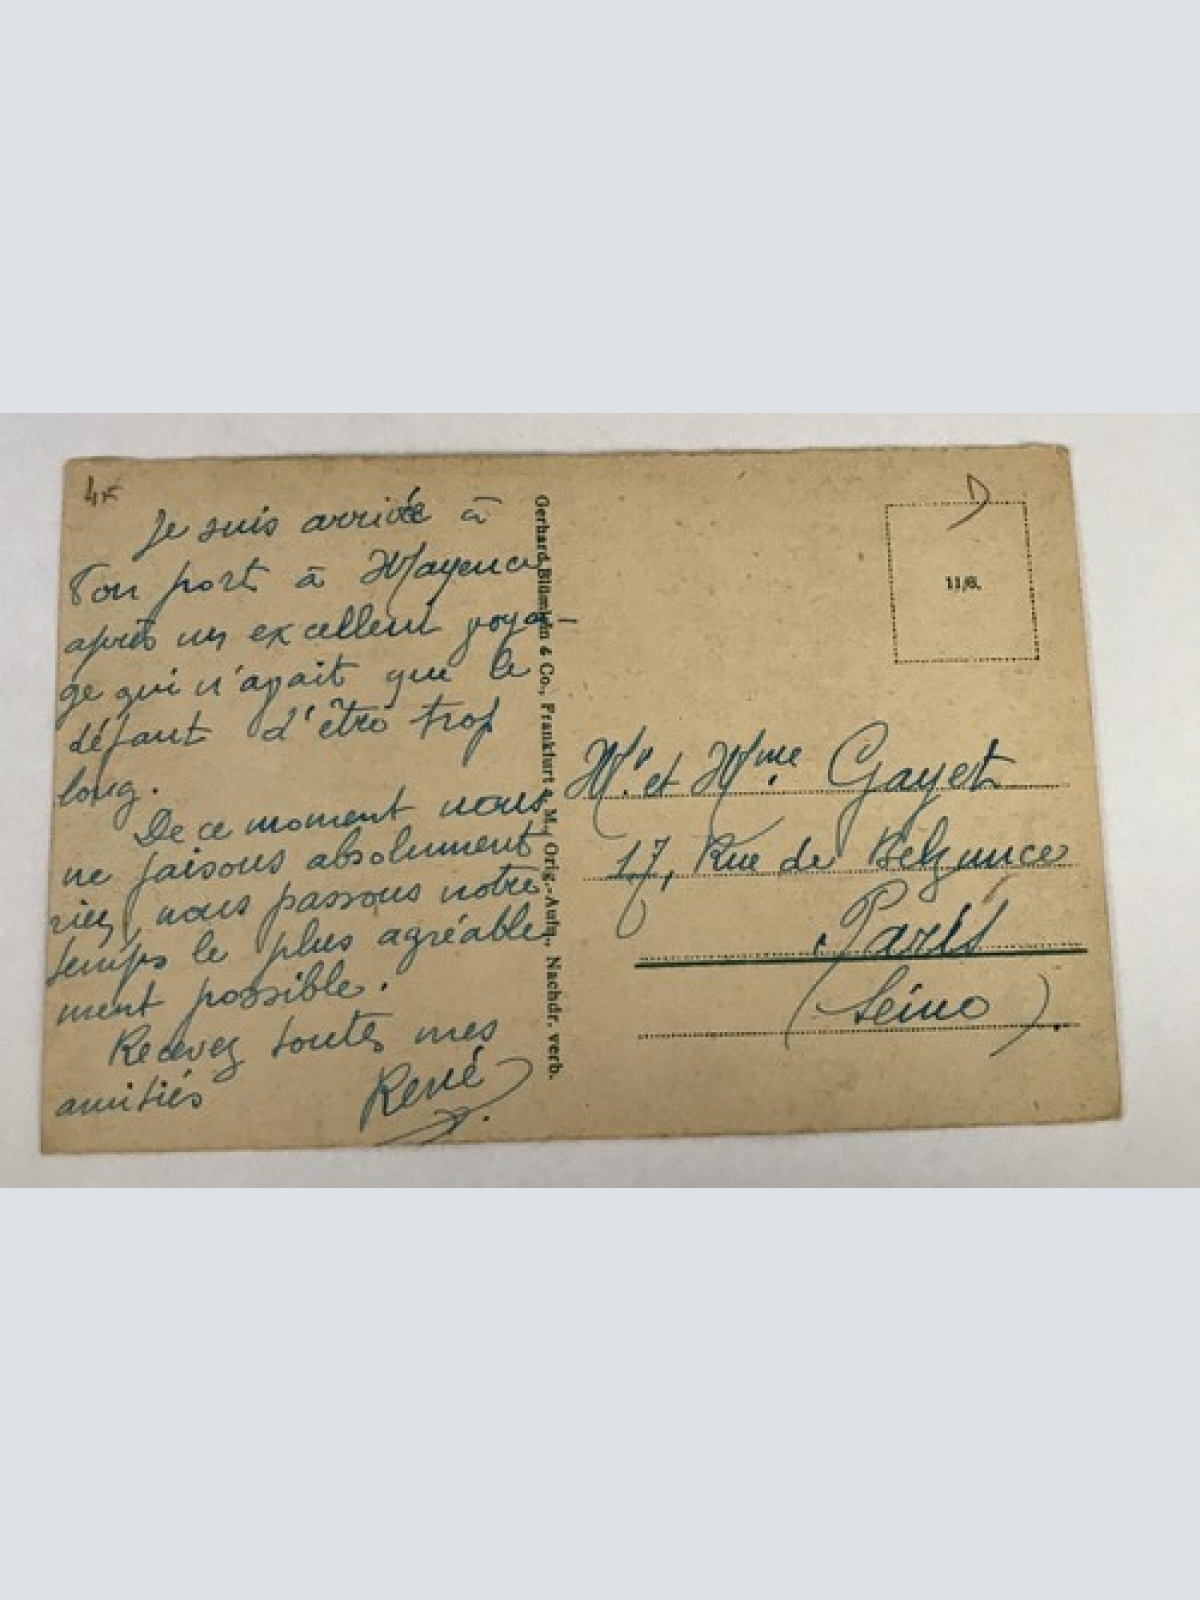 4F
Je suis arrivée à
bon port à Mayence
après un excellent voya-
ge qui n'avait que le
défaut d'être trop
long.
De ce moment nous
ne faisons absolument
rien, nous passons notre
temps le plus agréable-
ment possible.
Recevez toutes mes
amitiés
René
Gerhard Blümlein & Co., Frankfurt a. M., Orig.-Aufn., Nachdr. verb.
D
11/6.
Mr. et Mme Gayet
17, Rue de Belzunce
Paris
(Seine).